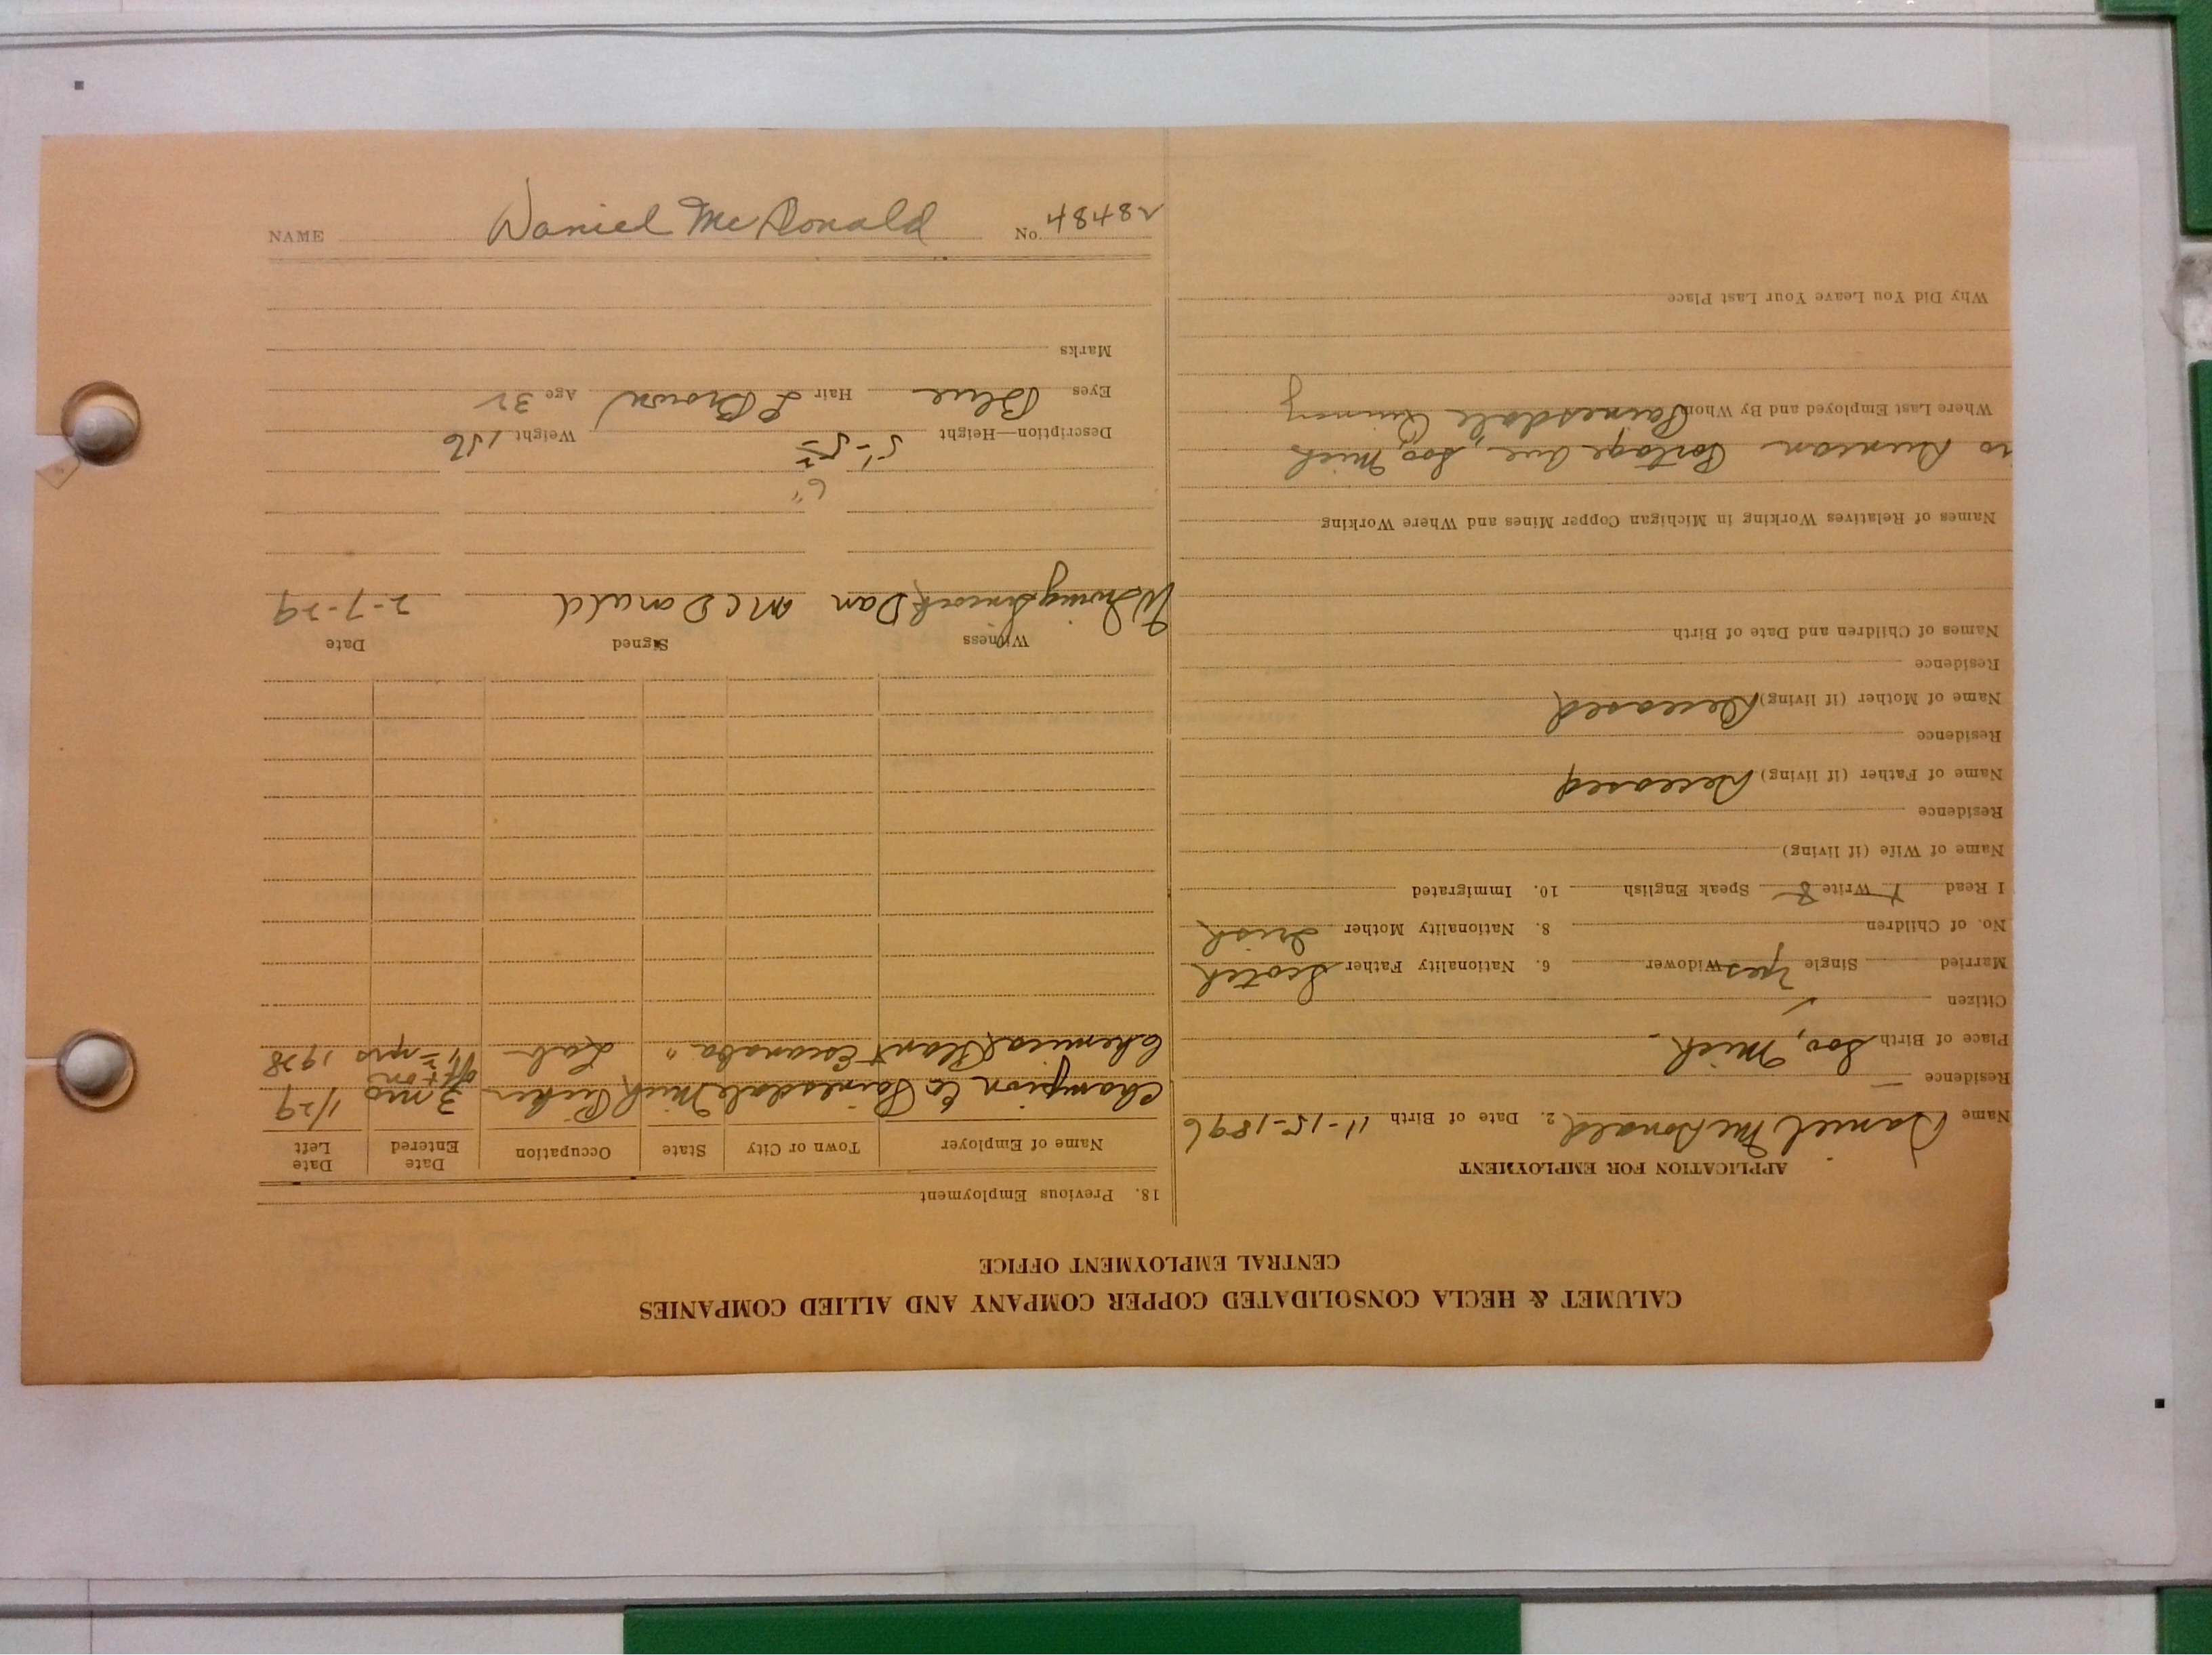 CALUMET & HECLA CONSOLIDATED COPPER COMPANY AND ALLIED COMPANIES
CENTRAL EMPLOYMENT OFFICE
APPLICATION FOR EMPLOYMENT
Name Daniel McDonald 2. Date of Birth 11-15-1896
Residence
Place of Birth Soo, Mich.
Citizen ✓
Married Single Yes Widower 6. Nationality Father Scotch
No. of Children 8. Nationality Mother Irish
I Read Write Speak English 10. Immigrated
Name of Wife (if living)
Residence
Name of Father (if living) Deceased
Residence
Name of Mother (if living) Deceased
Residence
Names of Children and Date of Birth
Names of Relatives Working in Michigan Copper Mines and Where Working
Duncan Portage Ave, Soo, Mich
Where Last Employed and By Whom Painesdale Quincy
Why Did You Leave Your Last Place
18. Previous Employment
Name of Employer Town or City State Occupation Date Entered Date Left
Champion Co Painesdale Mich 3 mo 1/29
off + on
Chemical Plant Escanaba " Lab yrs 1928
Witness Signed Date
Dan McDonald 2-7-29
6"
Description—Height 5'-5 Weight 156
Eyes Blue Hair L Brown Age 32
Marks
NAME Daniel McDonald No. 48482